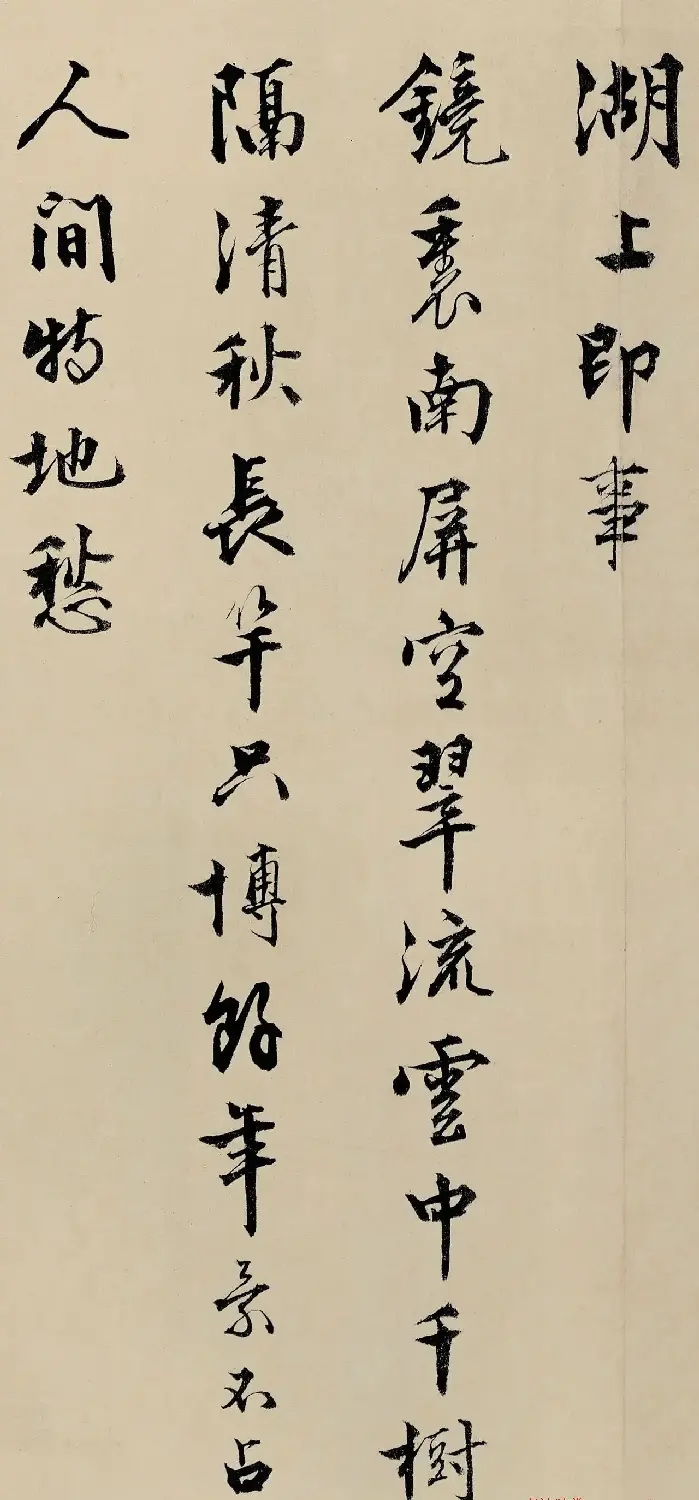 湖上即事
鏡裏南屏空翠流雲中千樹
隔清秋長竿只博餘年景不占
人間特地愁